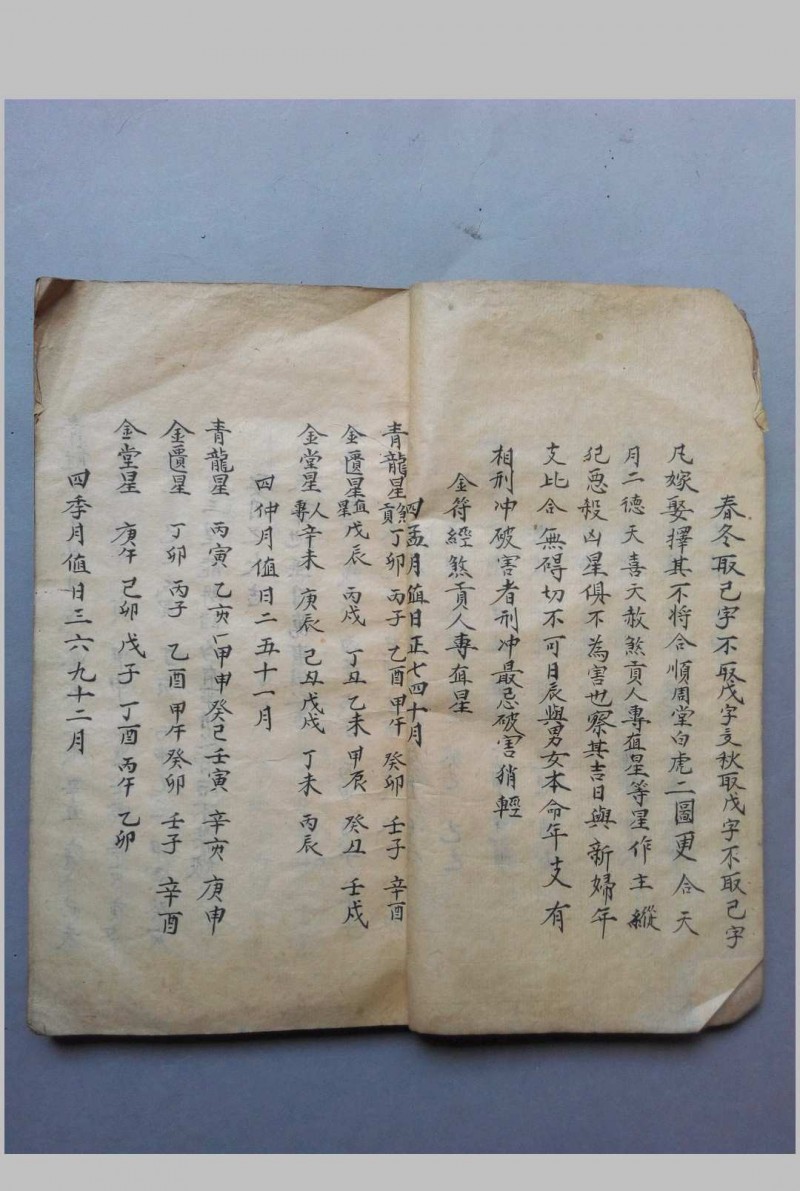 春冬取己字不取戊字夏秋取戊字不取己字
凡嫁娶擇其不將合順周堂白虎二圖更合天
月二德天喜天赦煞貢人專直星等星作主縱
犯惡殺凶星俱不為害也察其吉日與新婦年
支比合無碍切不可日辰與男女本命年支有
相刑冲破害者刑冲最忌破害稍輕
金符經煞貢人專直星
四孟月值日正七四十月
青龍星煞貢丁卯 丙子 乙酉 甲午 癸卯 壬子 辛酉
金匱星直星戊辰 丙戌 丁丑 乙未 甲辰 癸丑 壬戌
金堂星人專辛未 庚辰 己丑 戊戌 丁未 丙辰
四仲月值日二五十一月
青龍星 丙寅 乙亥 甲申 癸巳 壬寅 辛亥 庚申
金匱星 丁卯 丙子 乙酉 甲午 癸卯 壬子 辛酉
金堂星 庚午 己卯 戊子 丁酉 丙午 乙卯
四季月值日三六九十二月